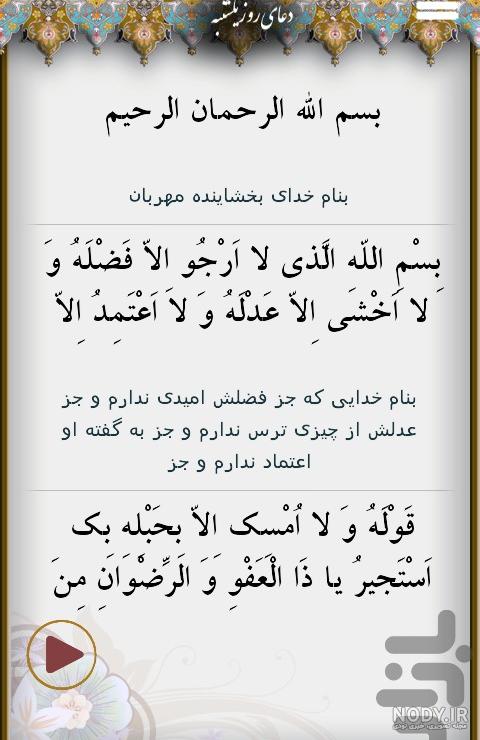 دعای روز یکشنبه
بسم الله الرحمان الرحیم
بنام خدای بخشاینده مهربان
بِسْمِ اللّه الَّذی لا اَرْجُو الاّ فَضْلَهُ وَ
لا اَخْشَی اِلاّ عَدْلَهُ وَ لاَ اَعْتَمِدُ اِلاّ
بنام خدایی که جز فضلش امیدی ندارم و جز
عدلش از چیزی ترس ندارم و جز به گفته او
اعتماد ندارم و جز
قَوْلَهُ وَ لا اُمْسِک الاّ بِحَبْلِهِ بِک
اَسْتَجیرُ یا ذَا الْعَفْوِ وَ الَرِّضْوَانِ مِنَ
بازار
NODY.IR
مجله تصویری، خبری نودی